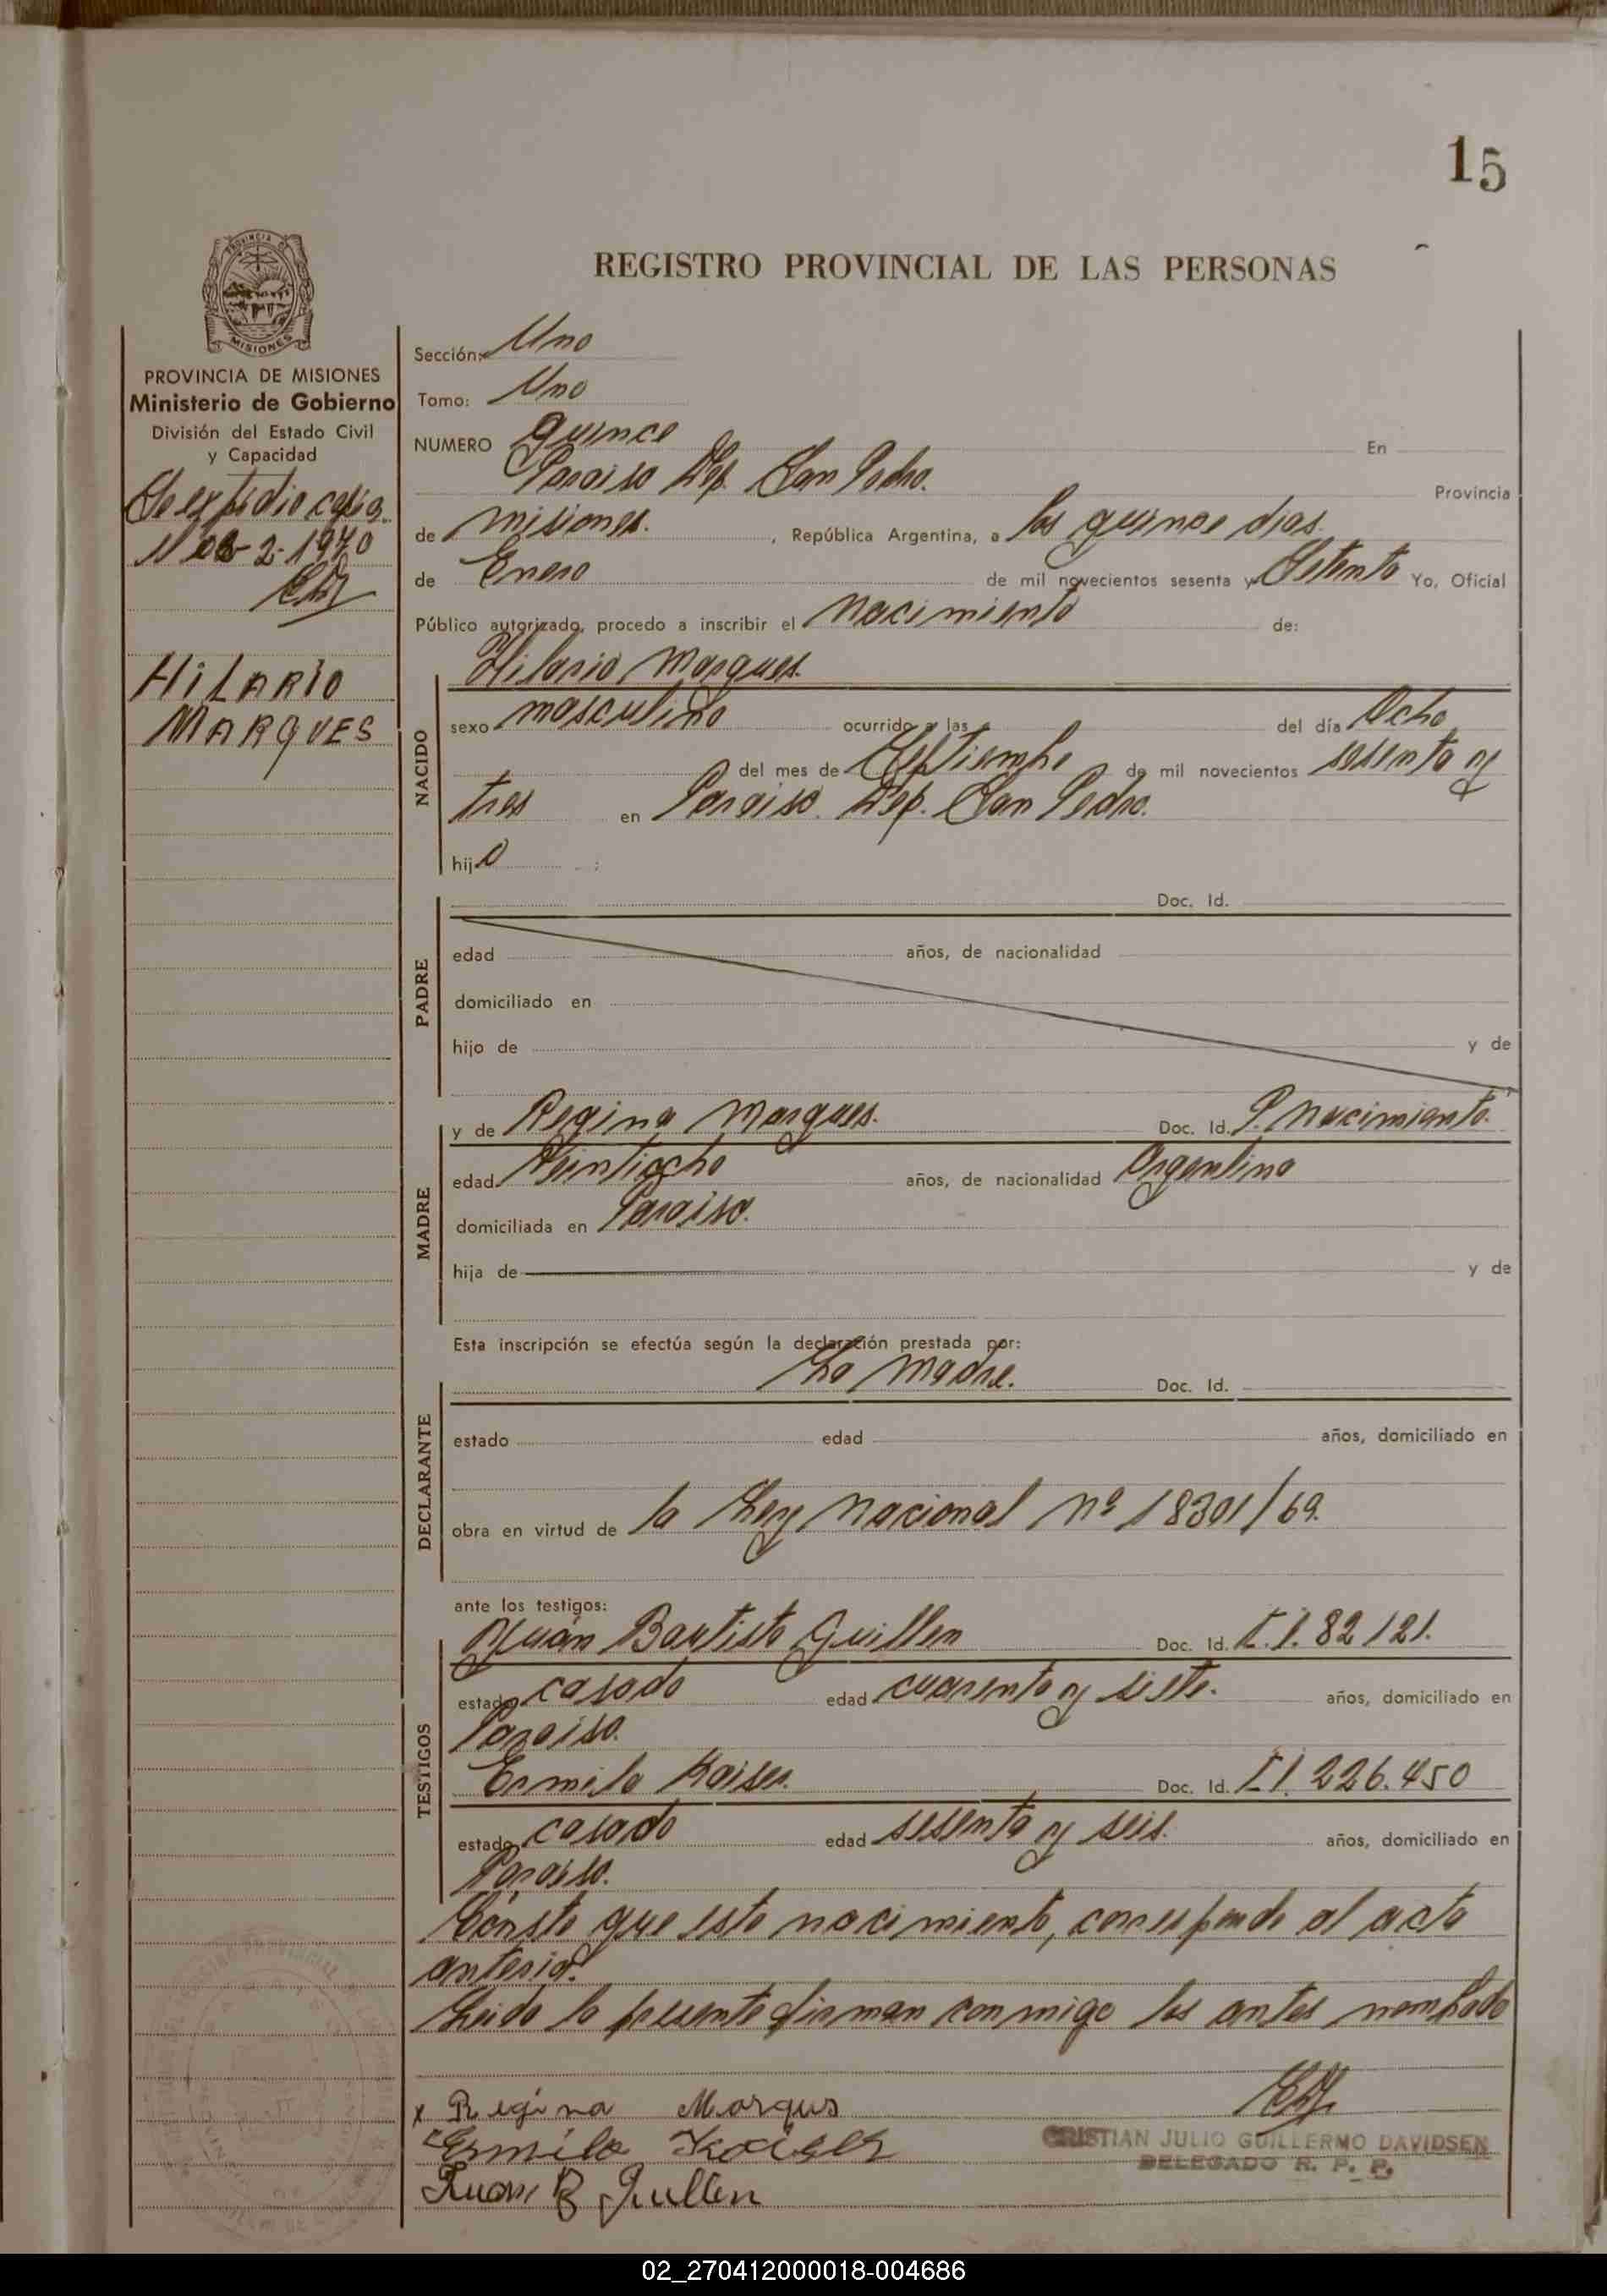 15
PROVINCIA DE
MISIONES
REGISTRO PROVINCIAL DE LAS PERSONAS
PROVINCIA DE MISIONES
Ministerio de Gobierno
División del Estado Civil
y Capacidad
Se expidió copia
1970
HILARIO
MARQUES
Sección: Uno
Tomo: Uno
NUMERO Quince En
Paraiso Dep. San Pedro. Provincia
de Misiones. , República Argentina, a los quince dias
de Enero de mil novecientos sesenta y Setenta Yo, Oficial
Público autorizado, procedo a inscribir el Nacimiento de:
NACIDO
Hilario Marques.
sexo masculino ocurrido a las del día Ocho
del mes de Septiembre de mil novecientos sesenta y
tres en Paraiso. Dep. San Pedro.
hijo :
PADRE
Doc. Id.
edad años, de nacionalidad
domiciliado en
hijo de y de
MADRE
y de Regina Marques. Doc. Id. P. Nacimiento.
edad Veintiocho años, de nacionalidad Argentina
domiciliada en Paraiso.
hija de y de
Esta inscripción se efectúa según la declaración prestada por:
DECLARANTE
La Madre. Doc. Id.
estado edad años, domiciliado en
obra en virtud de la Ley Nacional nº 18301/69.
ante los testigos:
TESTIGOS
Juán Bautista Guillen Doc. Id. C.I. 82121.
estado casado edad cuarenta y siete. años, domiciliado en
Paraiso.
Ermilo Kaiser. Doc. Id. C.I. 226.450
estado casado edad sesenta y seis. años, domiciliado en
Paraiso.
Conste que este nacimiento, corresponde al acta
anterior.
Leida la presente firman conmigo los antes nombrado
x Regina Marques
Ermilo Kaiser
Juan B Guillen
CRISTIAN JULIO GUILLERMO DAVIDSEN
DELEGADO R. P. P.
02_270412000018-004686